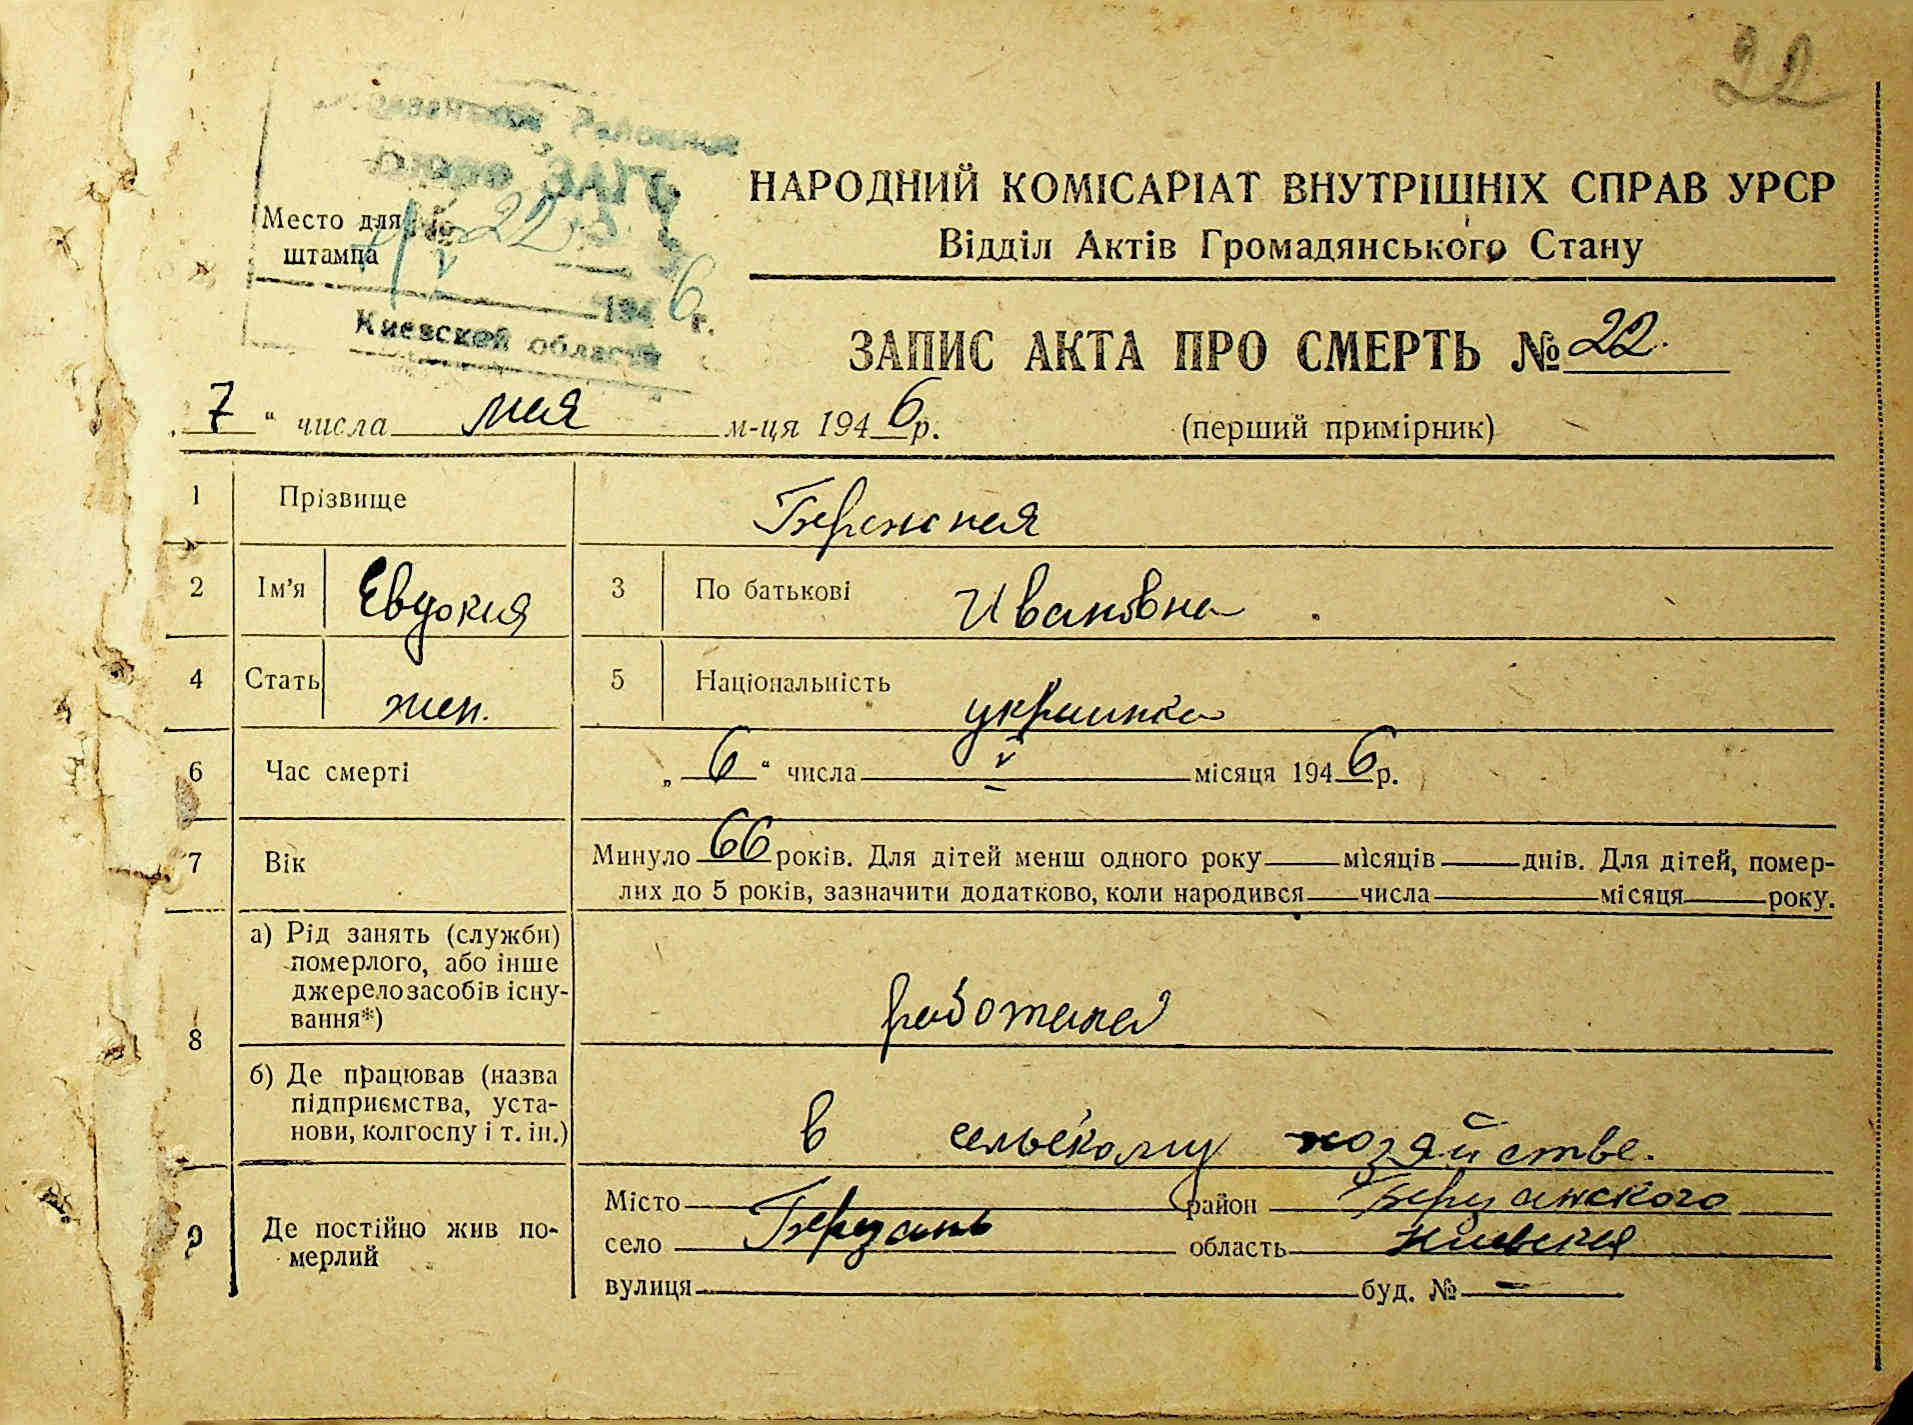 22
Место для
штампа
бюро ЗАГС
№ 22
7 V 1946 г.
Киевской области
НАРОДНИЙ КОМІСАРІАТ ВНУТРІШНІХ СПРАВ УРСР
Відділ Актів Громадянського Стану
ЗАПИС АКТА ПРО СМЕРТЬ № 22.
„ 7 “ числа мая м-ця 1946 р.
(перший примірник)
1 Прізвище Бережная
2 Ім'я Евдокия 3 По батькові Ивановна
4 Стать жен. 5 Національність украинка
6 Час смерті „ 6 “ числа V місяця 1946 р.
7 Вік Минуло 66 років. Для дітей менш одного року місяців днів. Для дітей, помер-
лих до 5 років, зазначити додатково, коли народився числа місяця року.
8 а) Рід занять (служби)
померлого, або інше
джерело засобів існу-
вання*)
работала
б) Де працював (назва
підприємства, уста-
нови, колгоспу і т. ін.)
в сельскому хозяйстве.
9 Де постійно жив по-
мерлий
Місто район Березанского
село Березань область Киевская
вулиця буд. № –